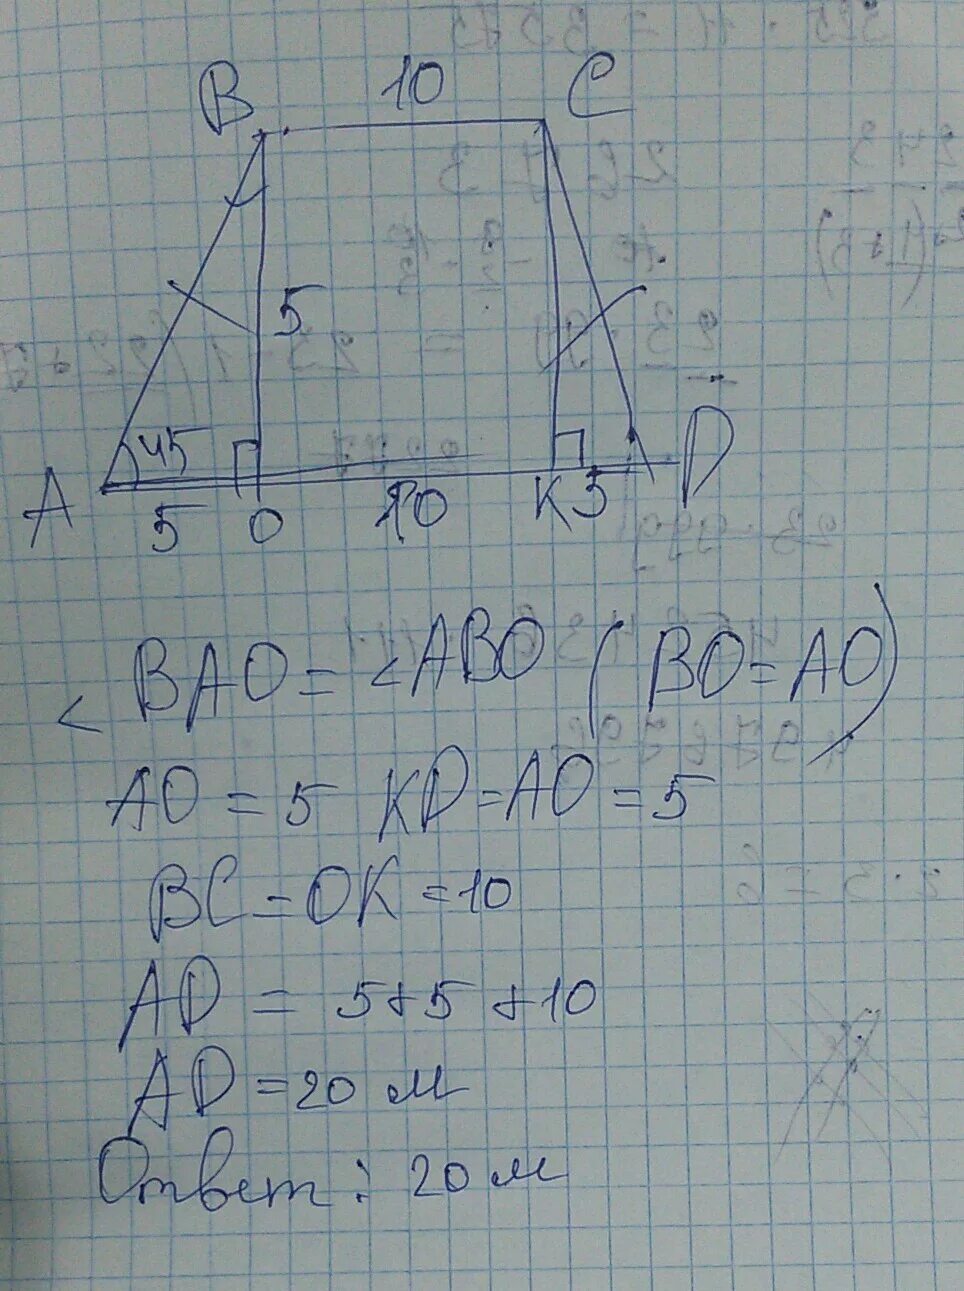 B 10 C
5
45
A 5 O 10 K 5 D
< BAO = < ABO ( BO = AO )
AO = 5 KD = AO = 5
BC = OK = 10
AD = 5 + 5 + 10
AD = 20 м
Ответ : 20 м